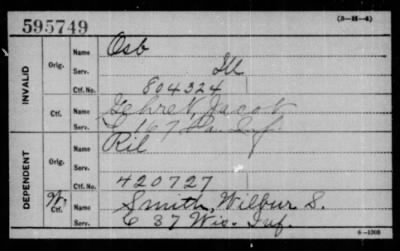 595749
(3-H-4)
INVALID
Orig.
Name
Osb
Serv.
Ill
Ctf. No.
804324
Ctf.
Name
Gehret, Jacob
Serv.
167 Pa. Inf.
DEPENDENT
Orig.
Name
Ril
Serv.
Ctf. No.
420727
W.
Ctf.
Name
Smith, Wilbur S.
Serv.
C 37 Wis. Inf.